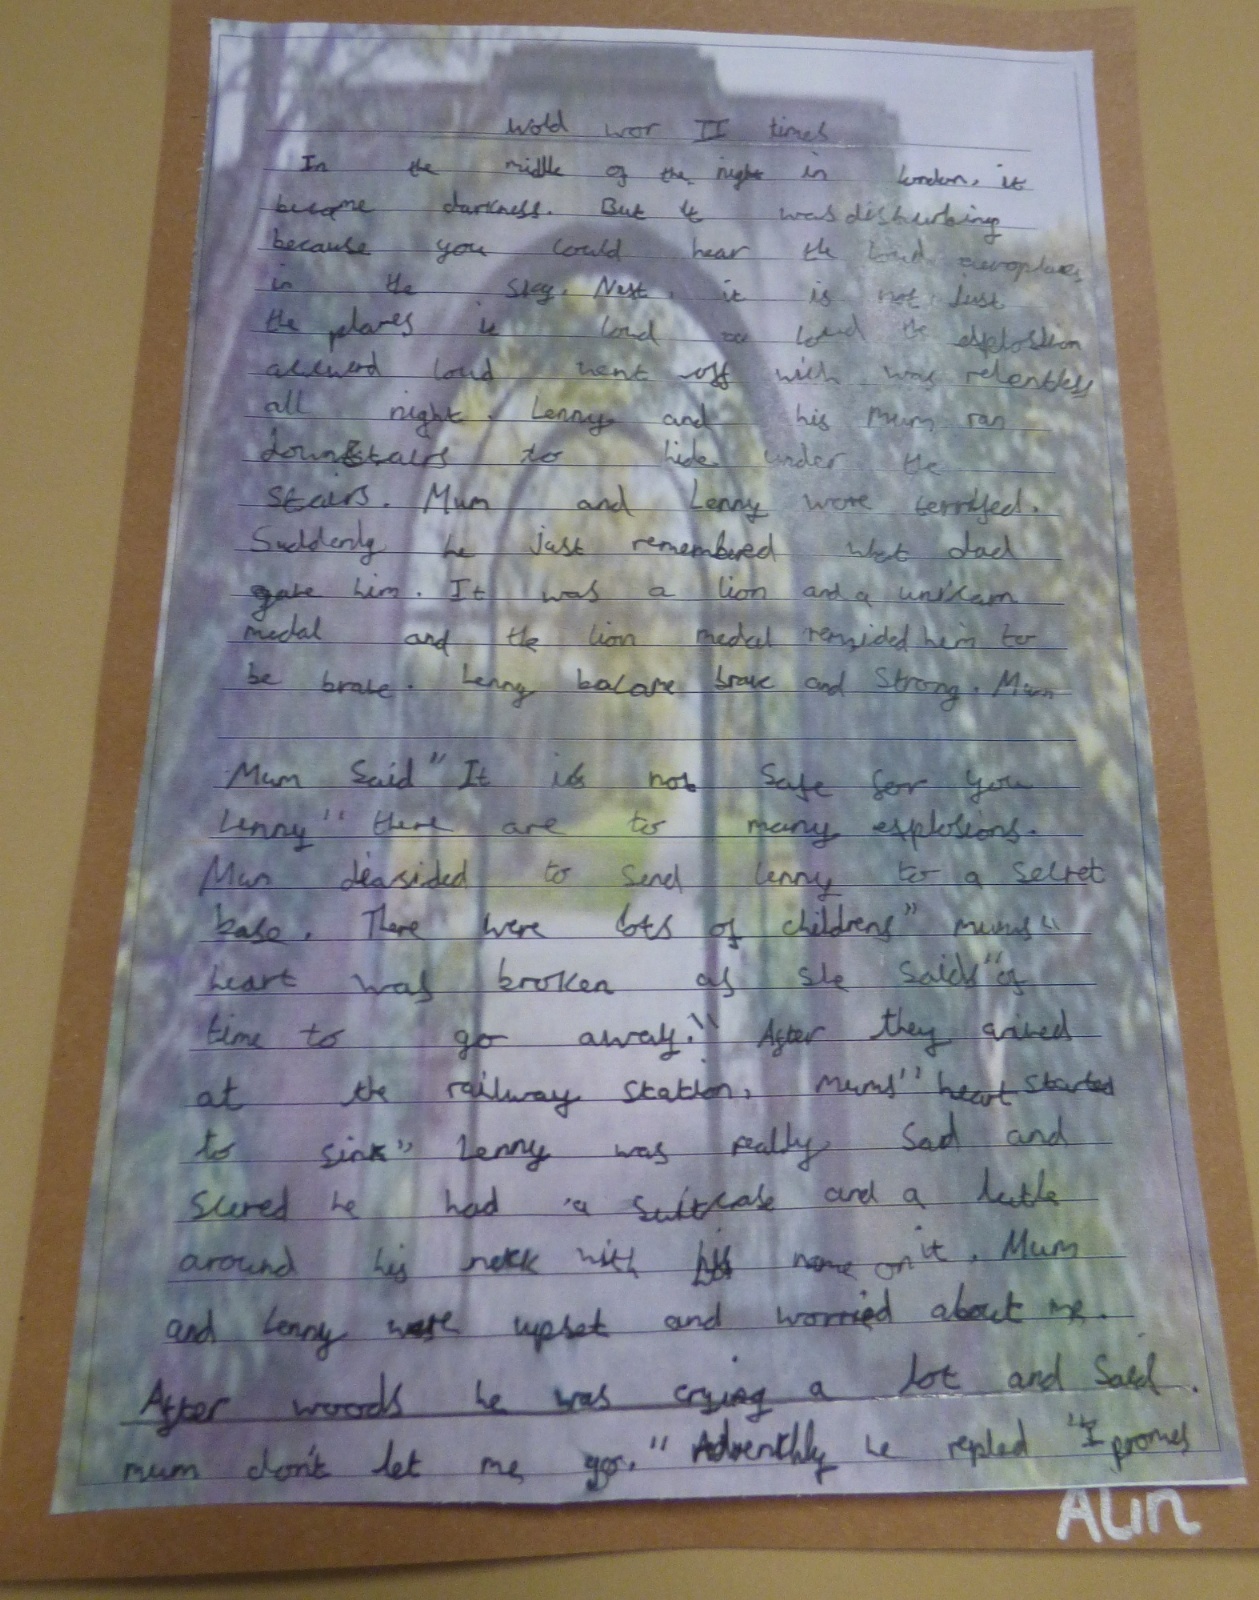 Wold wor II times
In the middle of the night in London, it
become darkness. But it was disturbing
because you could hear the loud aeroplanes
in the sky. Next, it is not Just
the planes is loud loud the esplosion
loud went off wich was relentless
all night. Lenny and his Mum ran
downstairs to hide under the
stairs. Mum and Lenny wore terrifyed.
Suddenly he just remembered what dad
gave him. It was a lion and a unicarn
medal and the lion medal remided him to
be brave. Lenny bacame brave and Strong. Mum
Mum Said" It is not Safe for you
Lenny" there are to many esplosions.
Mum deasided to Send Lenny to a Secret
base. There were lots of childrens" mums"
heart was broken as she said
time to go away." After they arived
at the railway station, mums" heart started
to sink" Lenny was really Sad and
Scered he had a Suitcase and a
around his neck with his name on it. Mum
and Lenny were upset and worried about me.
After woods he was crying a lot and Said.
mum don't let me go." he repled "I promes
ALin